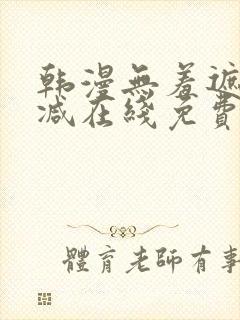 韩漫無羞遮
减在綫免費
體育老師有事